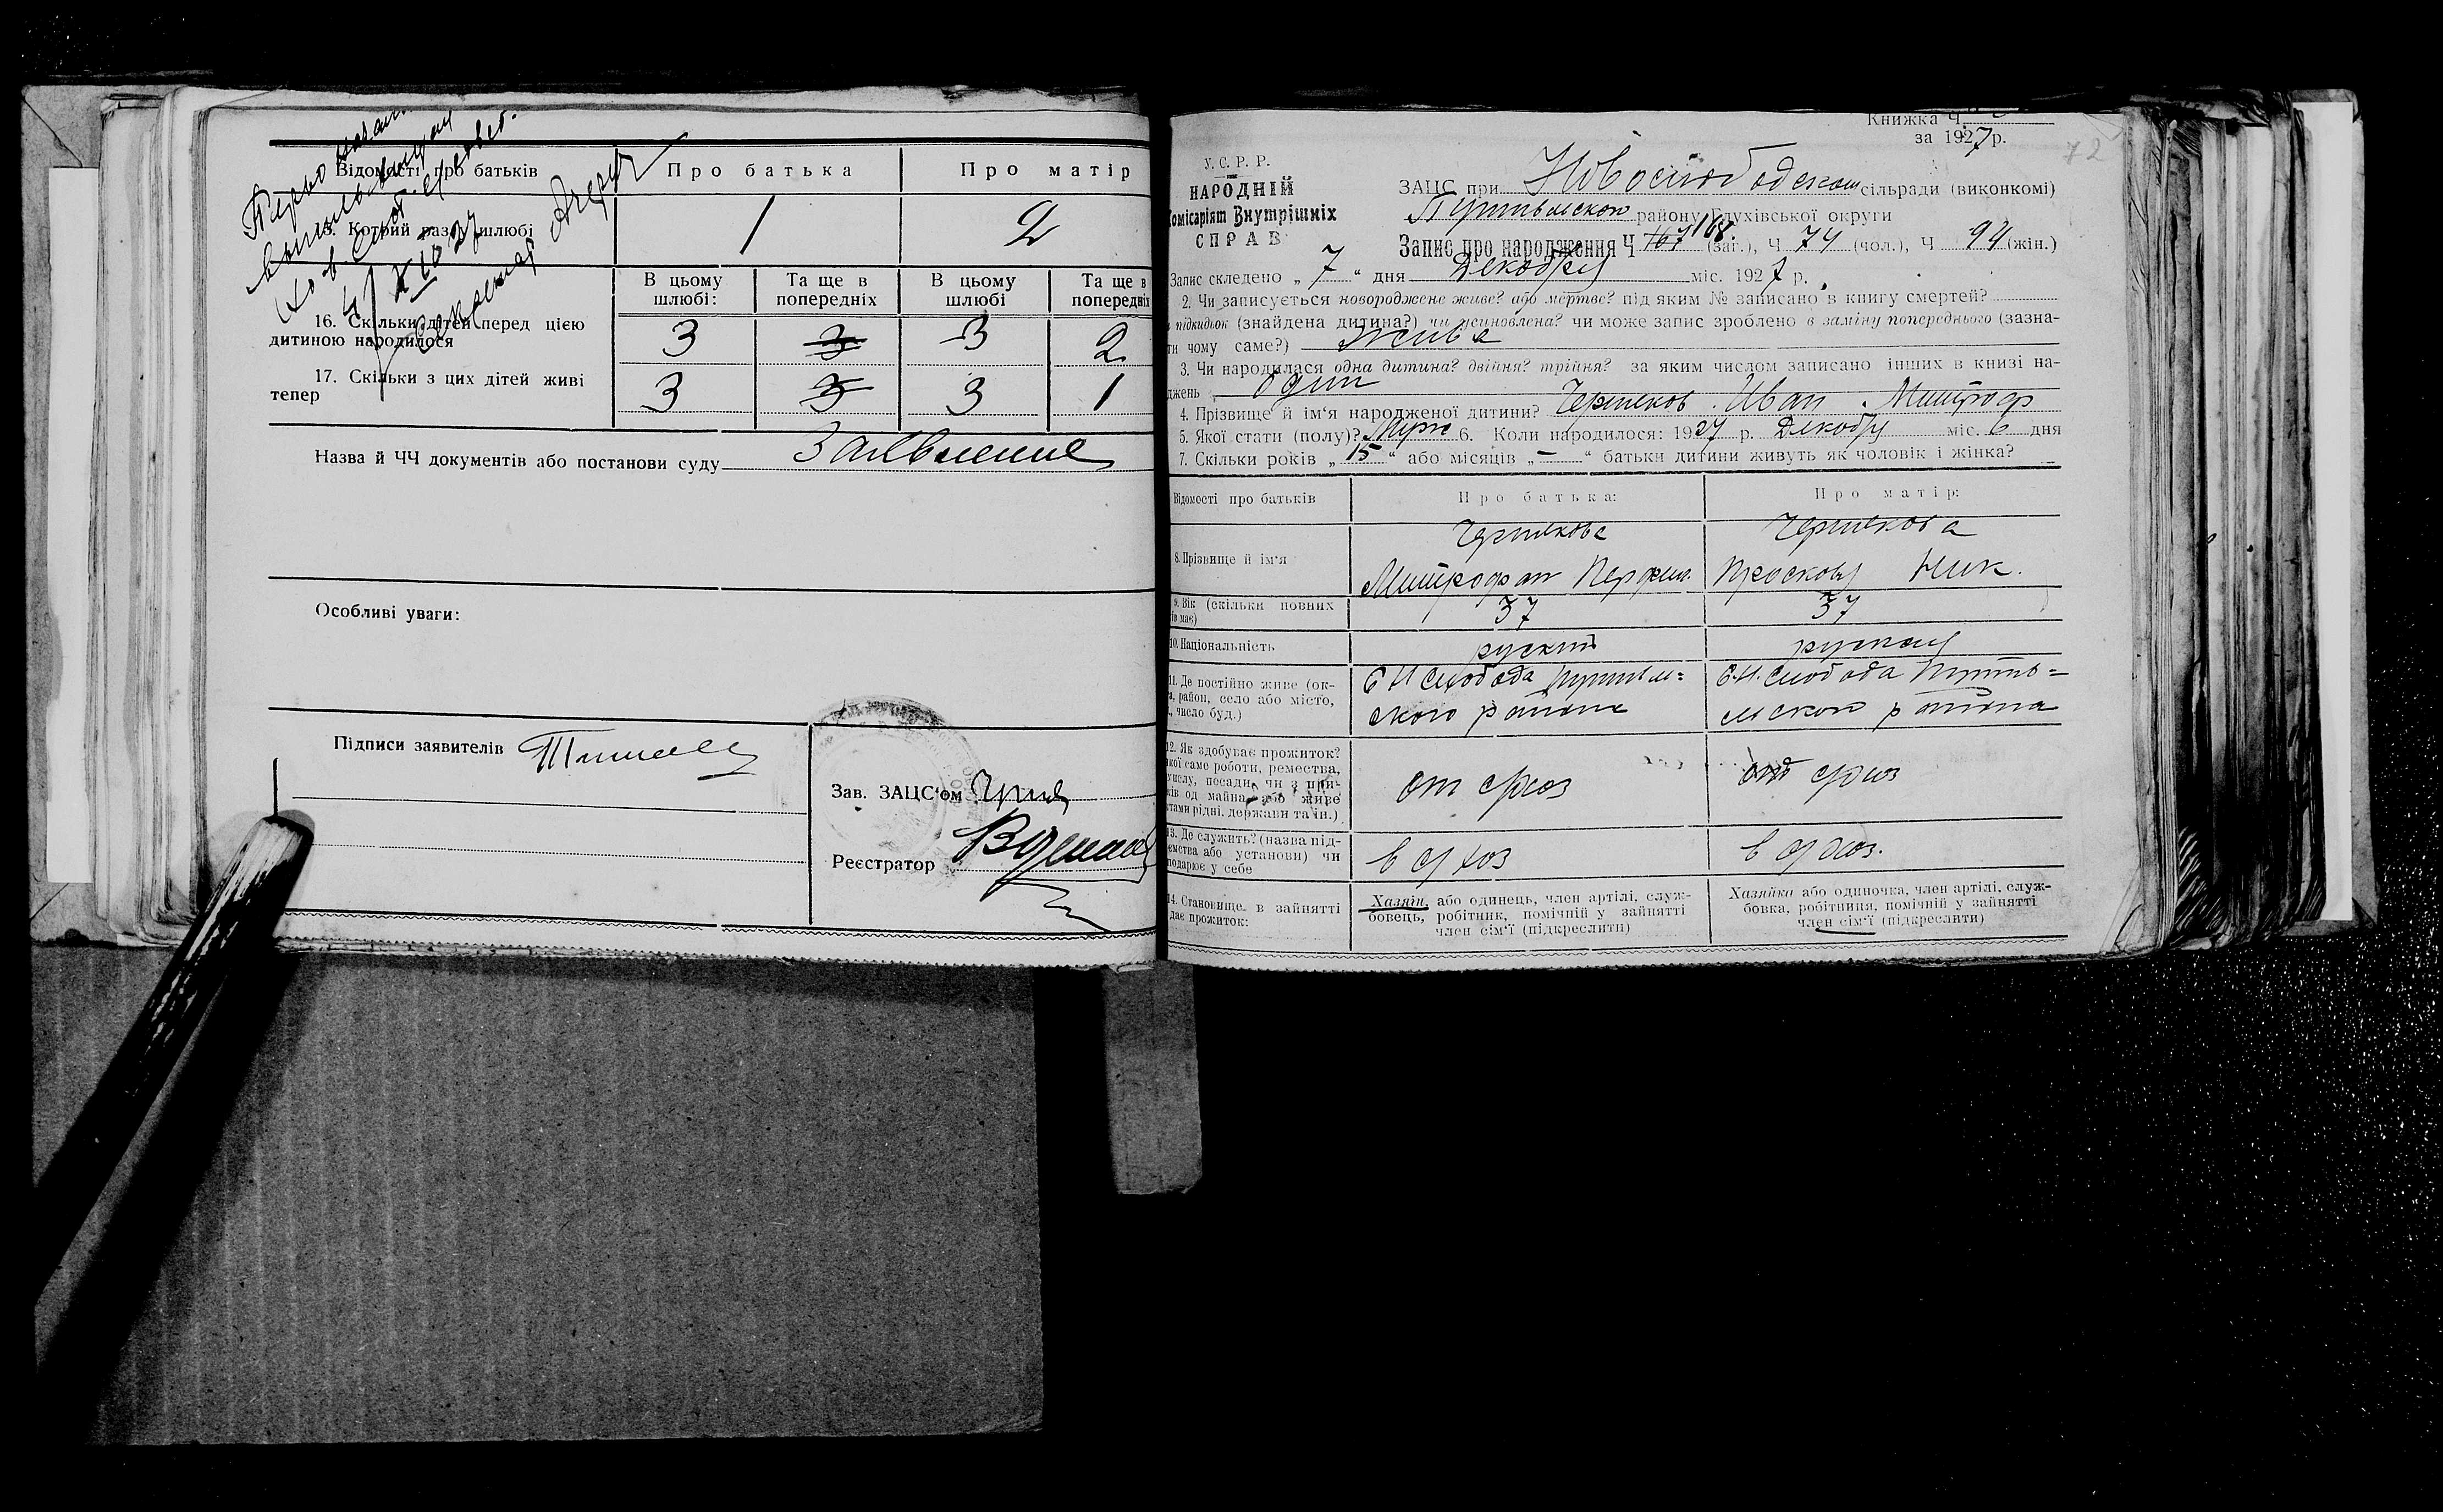 Відомості про батьків
Про батька
Про матір
15. Котрий раз у шлюбі
1
2
4/X 1037
В цьому шлюбі:
Та ще в попередніх
В цьому шлюбі
Та ще в попередніх
16. Скільки дітей перед цією
дитиною народилося
3
3
3
2
17. Скільки з цих дітей живі
тепер
3
3
3
1
Назва й ЧЧ документів або постанови суду Заявление
Особливі уваги:
Підписи заявителів
Зав. ЗАЦС'ом
Реєстратор
Книжка Ч.
за 1927 р.
72
У. С. Р. Р.
НАРОДНІЙ
Комісаріят Внутрішніх
СПРАВ
ЗАЦС при Новослободском сільради (виконкомі)
Путивльского району Глухівської округи
Запис про народження Ч 167 168 (заг.), Ч 74 (чол.), Ч 94 (жін.)
Запис складено „ 7 “ дня Декабря міс. 1927 р.
2. Чи записується новороджене живе? або мертве? під яким № записано в книгу смертей?
підкидьок (знайдена дитина?) чи усиновлена? чи може запис зроблено в заміну попереднього (зазна-
ти чому саме?) Жива
3. Чи народилася одна дитина? двійня? трійня? за яким числом записано інших в книзі на-
джень один
4. Прізвище й ім'я народженої дитини? Иван Митроф
5. Якої стати (полу)? Муж 6. Коли народилося: 1927 р. Декабря міс. 6 дня
7. Скільки років „ 15 “ або місяців „ – “ батьки дитини живуть як чоловік і жінка?
Відомості про батьків
Про батька:
Про матір:
8. Прізвище й ім'я
Митрофан
Ник.
9. Вік (скільки повних
ів має)
37
37
10. Національність
руский
руская
11. Де постійно живе (ок-
а, район, село або місто,
, число буд.)
С Н слобода Путивль=
ского района
С. Н. слобода Путив=
льского района
12. Як здобуває прожиток?
якої саме роботи, ремества,
числу, посади, чи з при-
ків од майна, або живе
тами рідні, держави та ін.)
от с/хоз
от с/хоз
13. Де служить? (назва під-
ємства або установи) чи
подарює у себе
в с/хоз
в с/хоз.
14. Становище в зайнятті
дає прожиток:
Хазяїн, або одинець, член артілі, служ-
бовець, робітник, помічній у зайнятті
член сім'ї (підкреслити)
Хазяйка або одиночка, член артілі, служ-
бовка, робітниця, помічній у зайнятті
член сім'ї (підкреслити)